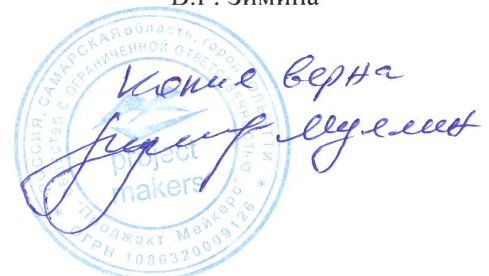 В.Г. Зимина
Копия верна
РОССИЯ, САМАРСКАЯ область, город
С ОГРАНИЧЕННОЙ ОТВЕТСТВЕННОСТЬЮ
project
makers
"Проджэкт Мейкерс"
ОГРН 1086320009126